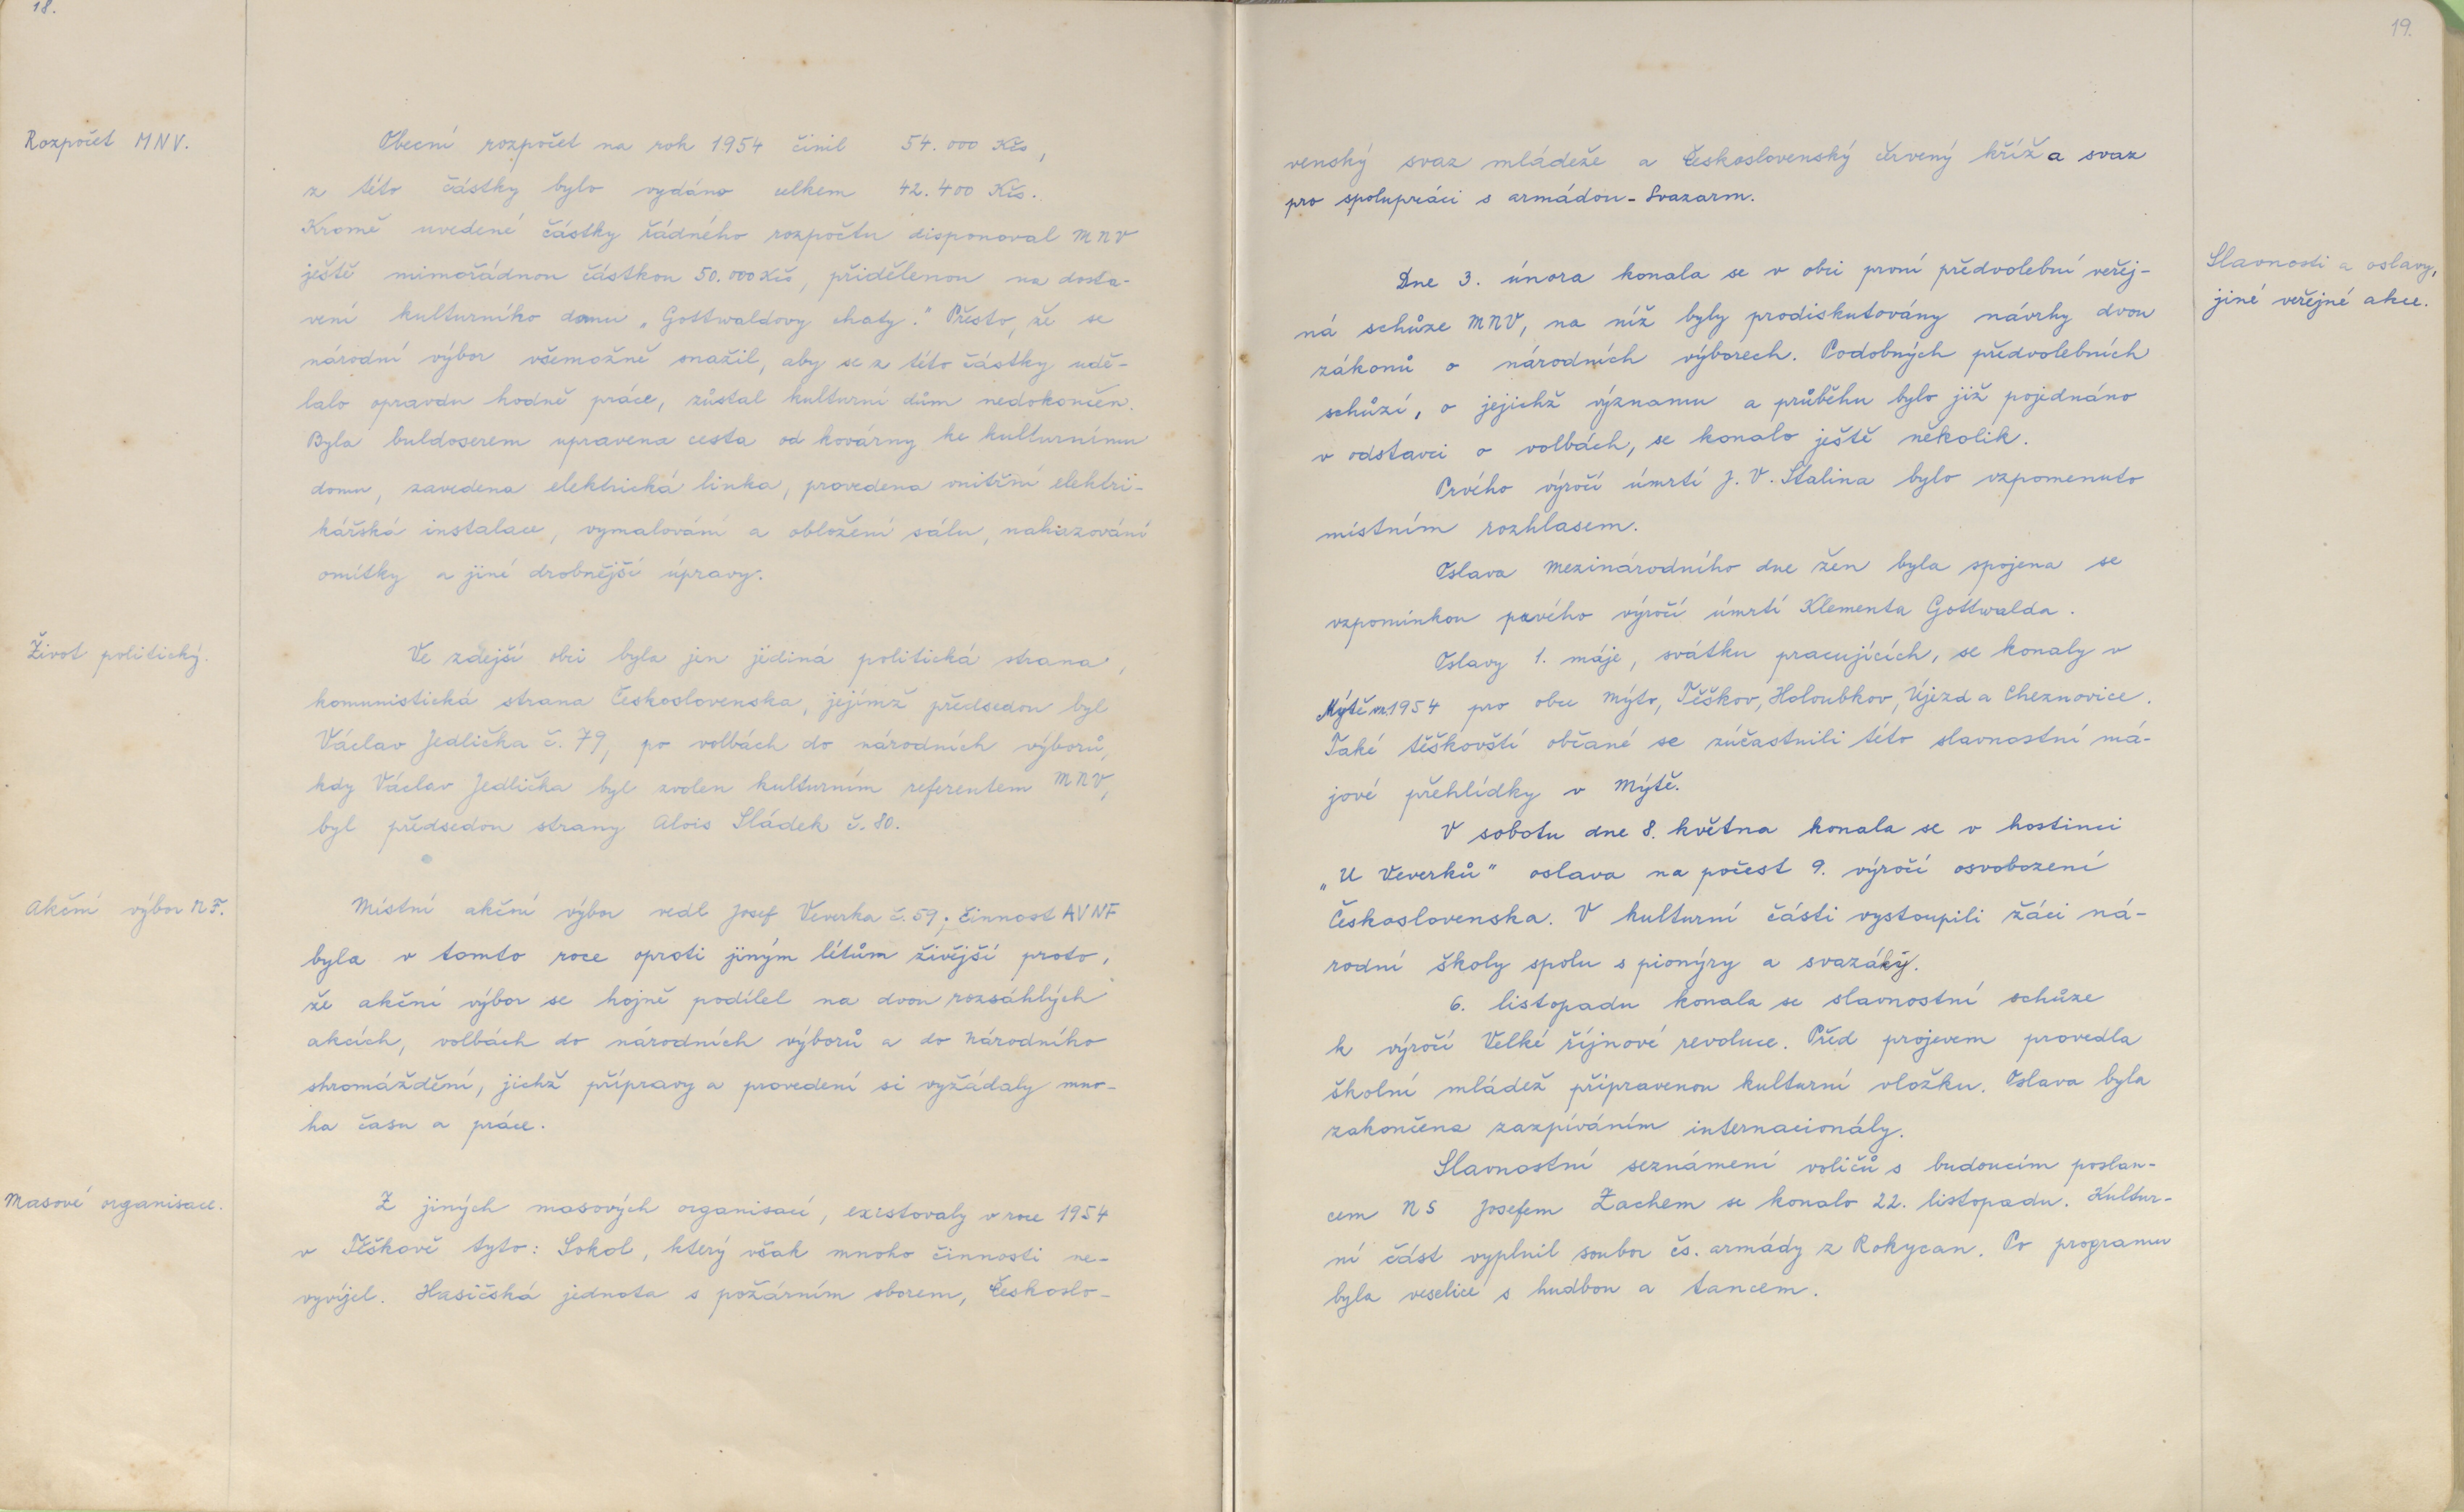 18.
Rozpočet MNV.
Obecní rozpočet na rok 1954 činil 54.000 Kčs,
z této částky bylo vydáno celkem 42.400 Kčs.
Kromě uvedené částky řádného rozpočtu disponoval MNV
ještě mimořádnou částkou 50.000 Kčs, přidělenou na dosta-
vení kulturního domu „Gottwaldovy chaty." Přesto, že se
národní výbor všemožně snažil, aby se z této částky udě-
lalo opravdu hodně práce, zůstal kulturní dům nedokončen.
Byla buldoserem upravena cesta od kovárny ke kulturnímu
domu, zavedena elektrická linka, provedena vnitřní elektri-
kářská instalace, vymalování a obložení sálu, nahazování
omítky a jiné drobnější úpravy.
Život politický.
Ve zdejší obci byla jen jediná politická strana,
komunistická strana Československa, jejímž předsedou byl
Václav Jedlička č. 79, po volbách do národních výborů,
kdy Václav Jedlička byl zvolen kulturním referentem MNV,
byl předsedou strany Alois Sládek č. 80.
Akční výbor NF.
Místní akční výbor vedl Josef Veverka č. 59; činnost AVNF
byla v tomto roce oproti jiným létům živější proto,
že akční výbor se hojně podílel na dvou rozsáhlých
akcích, volbách do národních výborů a do Národního
shromáždění, jichž přípravy a provedení si vyžádaly mno-
ha času a práce.
Masové organisace.
Z jiných masových organisací, existovaly v roce 1954
v Těškově tyto: Sokol, který však mnoho činnosti ne-
vyvíjel. Hasičská jednota s požárním sborem, Českoslo-
19.
venský svaz mládeže a Československý červený kříž a svaz
pro spolupráci s armádou - Svazarm.
Slavnosti a oslavy,
jiné veřejné akce.
Dne 3. února konala se v obci první předvolební veřej-
ná schůze MNV, na níž byly prodiskutovány návrhy dvou
zákonů o národních výborech. Podobných předvolebních
schůzí, o jejichž významu a průběhu bylo již pojednáno
v odstavci o volbách, se konalo ještě několik.
Prvého výročí úmrtí J. V. Stalina bylo vzpomenuto
místním rozhlasem.
Oslava Mezinárodního dne žen byla spojena se
vzpomínkou prvého výročí úmrtí Klementa Gottwalda.
Oslavy 1. máje, svátku pracujících, se konaly v
Mýtě vr. 1954 pro obce Mýto, Těškov, Holoubkov, Újezd a Cheznovice.
Také těškovští občané se zúčastnili této slavnostní má-
jové přehlídky v Mýtě.
V sobotu dne 8. května konala se v hostinci
„U Veverků" oslava na počest 9. výročí osvobození
Československa. V kulturní části vystoupili žáci ná-
rodní školy spolu s pionýry a svazáky.
6. listopadu konala se slavnostní schůze
k výročí Velké říjnové revoluce. Před projevem provedla
školní mládež připravenou kulturní vložku. Oslava byla
zakončena zazpíváním internacionály.
Slavnostní seznámení voličů s budoucím poslan-
cem NS Josefem Zachem se konalo 22. listopadu. Kultur-
ní část vyplnil soubor čs. armády z Rokycan. Po programu
byla veselice s hudbou a tancem.